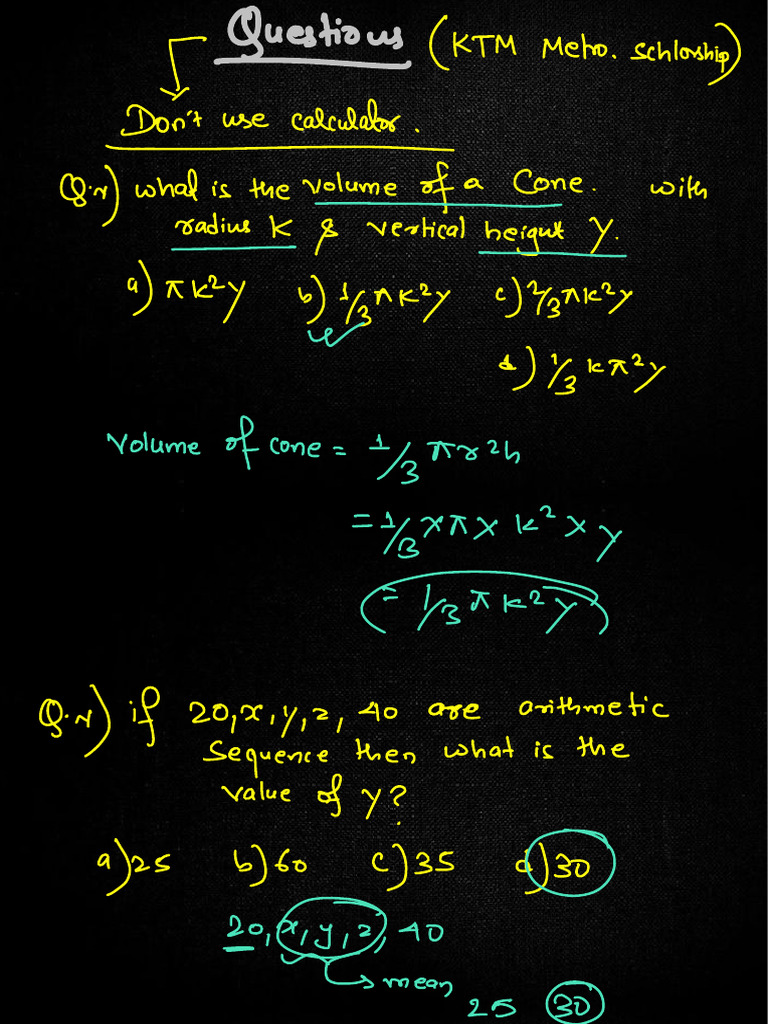 Questions (KTM Metro. schlorship)
Don't use calculator.
Q.N) what is the volume of a Cone. with
radius K & vertical height Y.
a) πk²y b) 1/3πk²y c) 2/3πk²y
d) 1/3kπ²y
Volume of cone = 1/3πr²h
= 1/3×π×k²×y
= 1/3πk²y
Q.N) if 20,x,y,z, 40 are arithmetic
sequence then what is the
value of y?
a) 25 b) 60 c) 35 d) 30
20, x, y, z, 40
→ mean
25 30